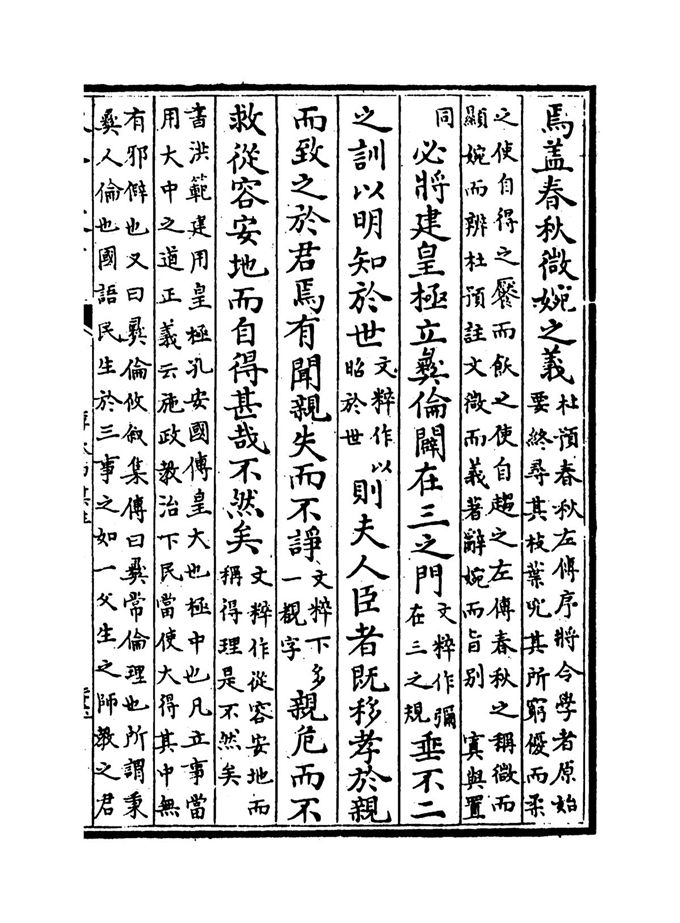 焉盖春秋微婉之義杜預春秋左傳序將令學者原始
要終尋其枝葉究其所窮優而柔
之使自得之饜而飫之使自趨之左傳春秋之稱微而
顯婉而辨杜預註文微而義著辭婉而旨别 寘與置
同 必將建皇極立彛倫闢在三之門文粹作彌在三之規垂不二
之訓以明知於世文粹作以昭於世則夫人臣者既移孝於親
而致之於君焉有聞親失而不諍文粹下多一觀字親危而不
救從容安地而自得甚哉不然矣文粹作從容安地而稱得理是不然矣
書洪範建用皇極孔安國傳皇大也極中也凡立事當
用大中之道正義云施政教治下民當使大得其中無
有邪僻也又曰彛倫攸叙集傳曰彛常倫理也所謂秉
彛人倫也國語民生於三事之如一父生之師教之君